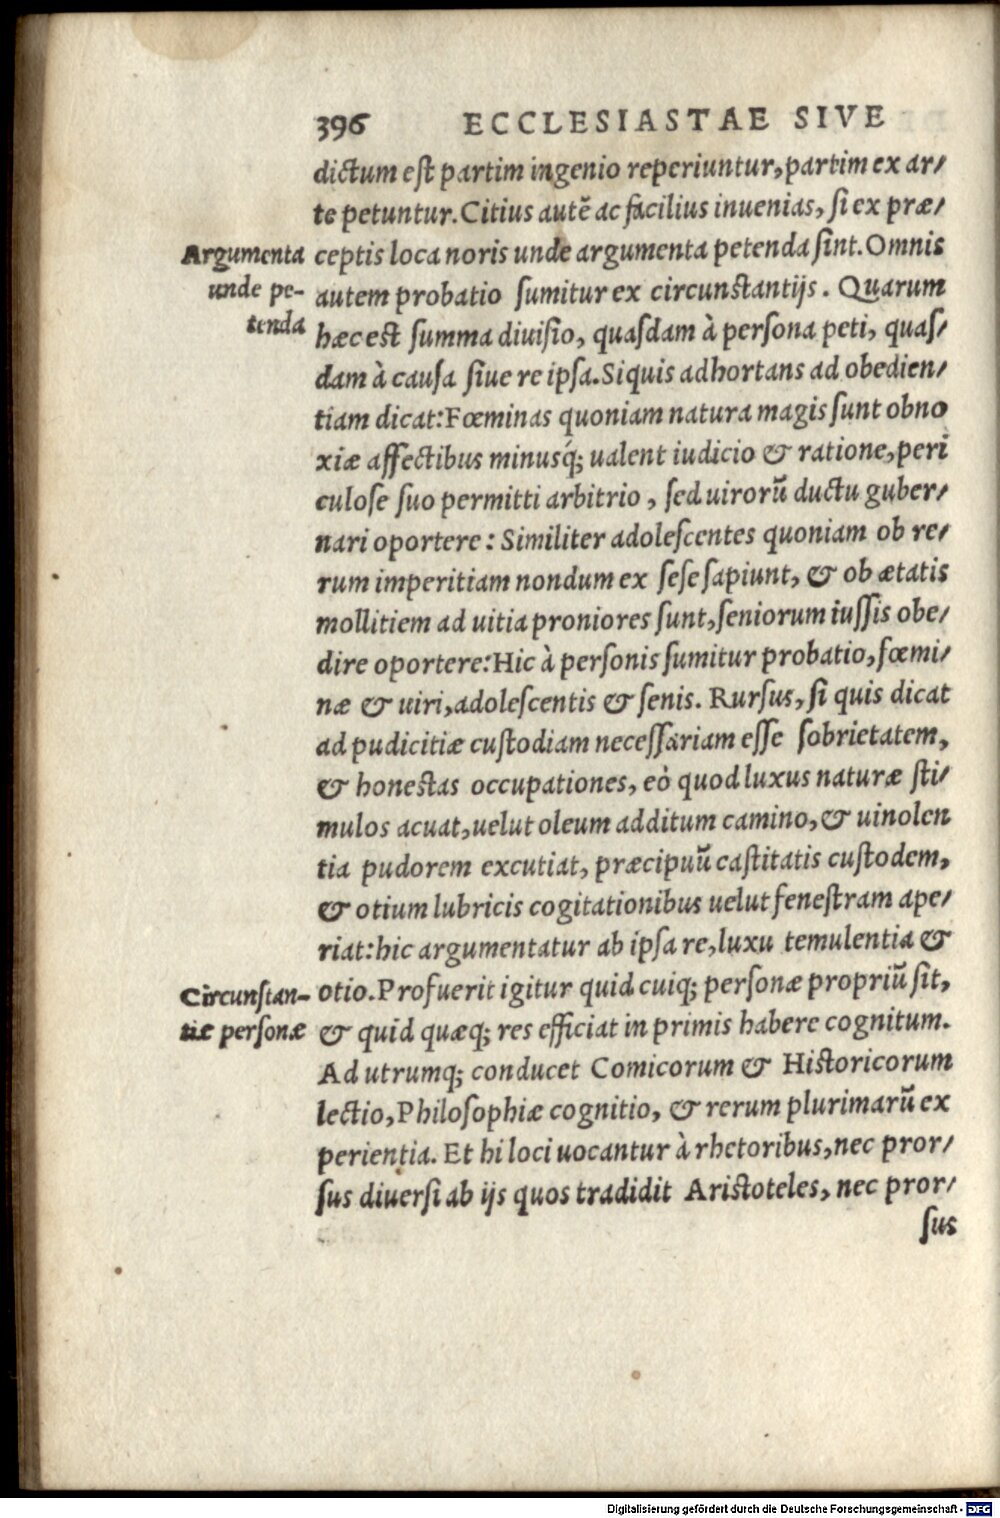 396 ECCLESIASTAE SIVE
dictum est partim ingenio reperiuntur, partim ex ar/
te petuntur. Citius autē ac facilius inuenias, si ex præ/
Argumenta
unde pe-
tenda
ceptis loca noris unde argumenta petenda sint. Omnis
autem probatio sumitur ex circunstantijs. Quarum
hæc est summa diuisio, quasdam à persona peti, quas/
dam à causa siue re ipsa. Si quis adhortans ad obedien/
tiam dicat: Fœminas quoniam natura magis sunt obno
xiæ affectibus minusq́; ualent iudicio & ratione, peri
culose suo permitti arbitrio, sed uirorū ductu guber/
nari oportere: Similiter adolescentes quoniam ob re/
rum imperitiam nondum ex sese sapiunt, & ob ætatis
mollitiem ad uitia proniores sunt, seniorum iussis obe/
dire oportere: Hic à personis sumitur probatio, fœmi/
næ & uiri, adolescentis & senis. Rursus, si quis dicat
ad pudicitiæ custodiam necessariam esse sobrietatem,
& honestas occupationes, eò quod luxus naturæ sti/
mulos acuat, uelut oleum additum camino, & uinolen
tia pudorem excutiat, præcipuū castitatis custodem,
& otium lubricis cogitationibus uelut fenestram ape/
riat: hic argumentatur ab ipsa re, luxu temulentia &
Circunstan-
tiæ personæ
otio. Profuerit igitur quid cuiq; personæ propriū sit,
& quid quæq; res efficiat in primis habere cognitum.
Ad utrumq; conducet Comicorum & Historicorum
lectio, Philosophiæ cognitio, & rerum plurimarū ex
perientia. Et hi loci uocantur à rhetoribus, nec pror/
sus diuersi ab ijs quos tradidit Aristoteles, nec pror/
sus
Digitalisierung gefördert durch die Deutsche Forschungsgemeinschaft - DFG